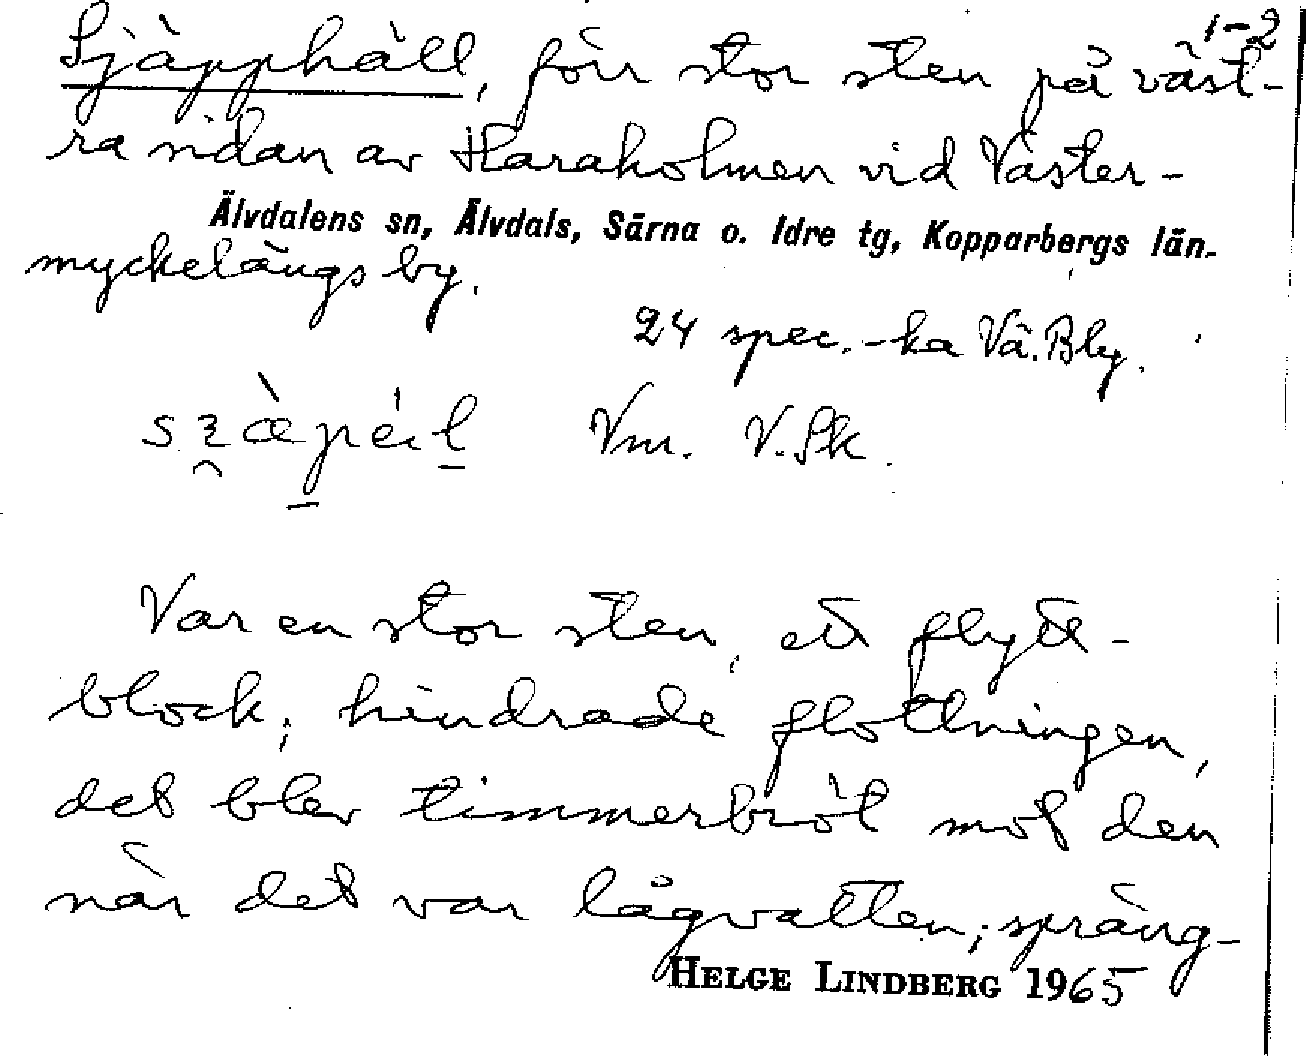 1-2
Sjäpphäll, förr stor sten på väst-
ra sidan av Haraholmen vid Väster-
Älvdalens sn, Älvdals, Särna o. Idre tg, Kopparbergs län.
myckelängs by.
24 spec.-ka Vä. Bly.
Vm. V.Sk.
Var en stor sten, ett flytt-
block; hindrade flottningen,
det blev timmerbröt mot den
när det var lågvatten; spräng-
HELGE LINDBERG 1965